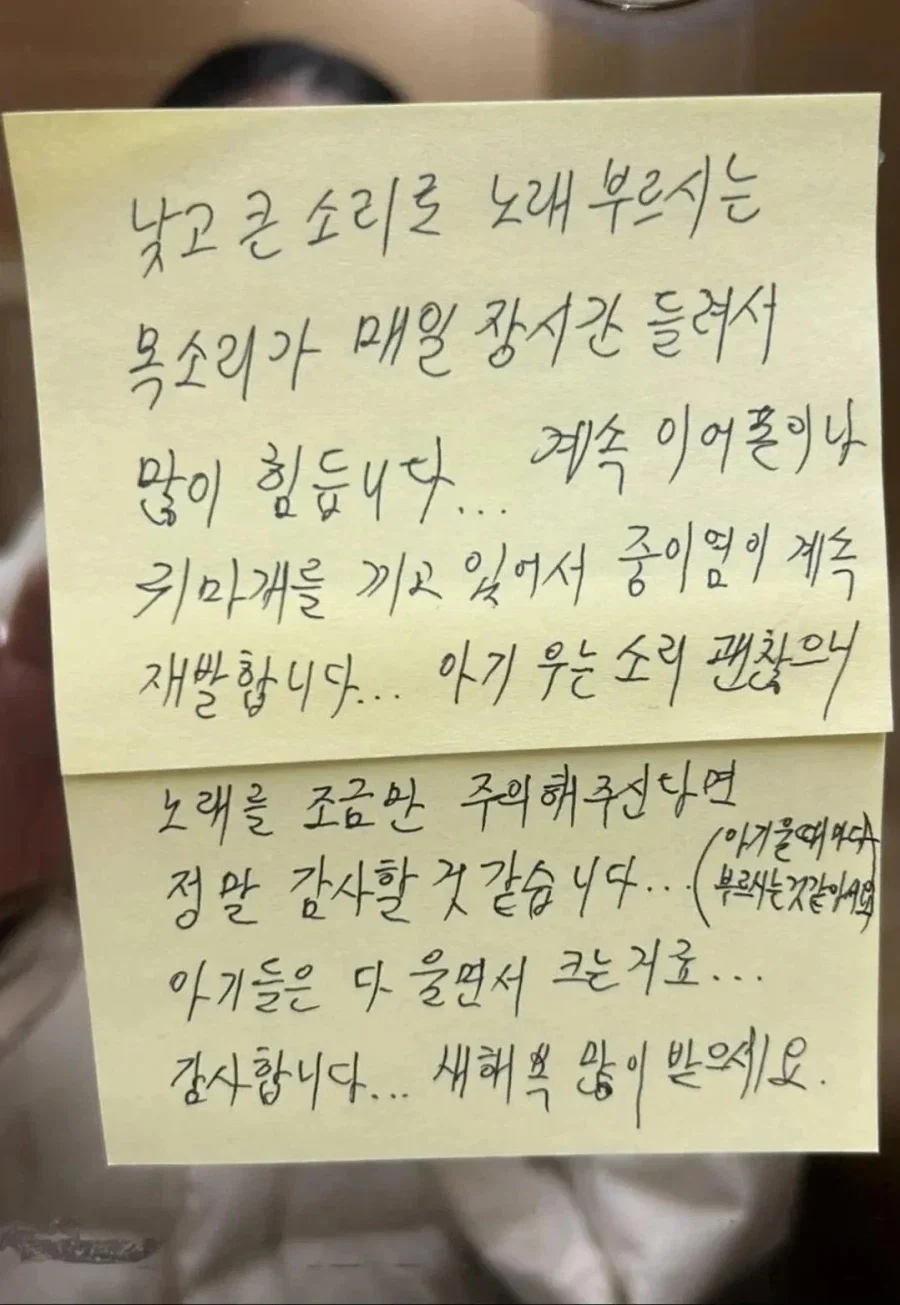 낮고 큰 소리로 노래 부르시는
목소리가 매일 장시간 들려서
많이 힘듭니다... 계속 이어폰이나
귀마개를 끼고 있어서 중이염이 계속
재발합니다... 아기 우는 소리 괜찮으니
노래를 조금만 주의해주신다면
정말 감사할 것 같습니다... (아기울때마다
부르시는것같아서요)
아기들은 다 울면서 크는거죠...
감사합니다... 새해 복 많이 받으세요.